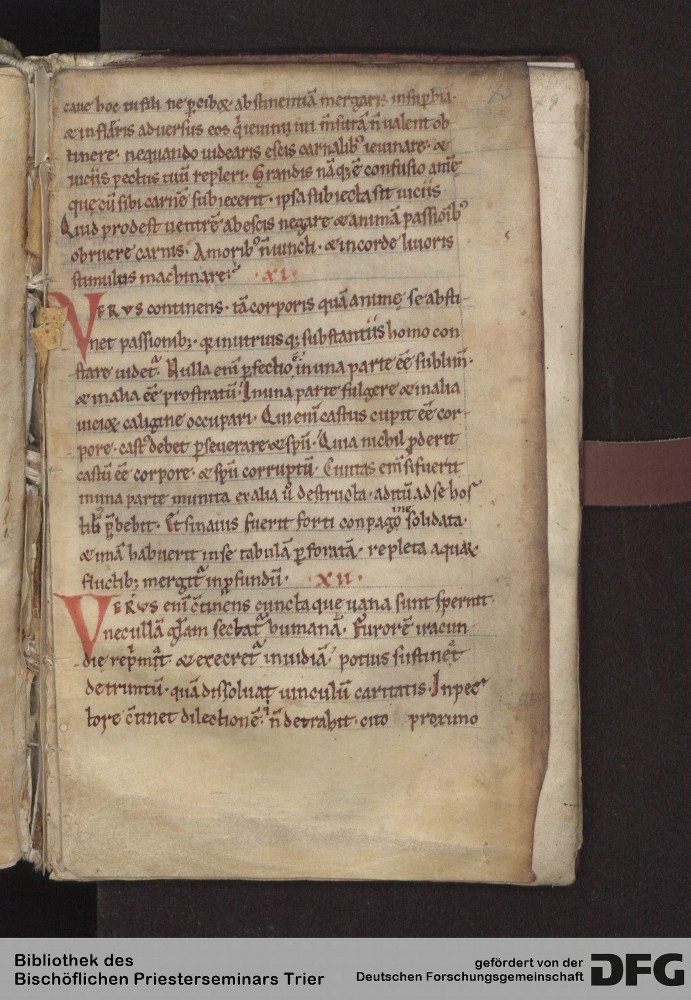 caue hoc tu fili ne p̲cib᷒ & abstinentiā mergaris in sup̲bia.
& inflāris aduersus eos q̇ ieiunij uū m̄surā n̄ ualent ob
tinere. nequando uidearis escis carnalib᷒ ieiunare. &
uiciis pectus tuū repleri. Grandis nāq; ē confusio animę
que cū sibi carnē subiecerit. ipsa subiecta sit uiciis.
Quid prodest uentrē ab escis negare & animā passiōib᷒
obruere carnis. Amorib᷒ n̄ iunci. & in corde liuoris
stimulus machinare. .XI.
VERVS continens. tā corporis quā animę se absti-
net passionib;. q̇ in utriusq; substantiis homo con
stare uidet̄. Nulla enī p̲fectio ē in una parte eē sublimē.
& in alia eē prostratū. In una parte fulgere & in alia
uicioꝝ caligine occupari. Qui enī castus cupit eē cor-
pore. cast᷒ debet p̲seuerare & sp̄u. Quia nichil p̲derit
castū eē corpore. & sp̄u corruptū. Ciuitas enī si fuerit
in una parte munita ex alia ū destructa. aditū ad se hos
tib᷒ p̄bebit. Et si nauis fuerit forti conpagine solidata.
& unā habuerit in se tabulā p̲foratā. repleta aquaꝝ
fluctib; mergit̄ in p̲fundū. .XII.
VERVS enī c̄tinens cuncta que uana sunt spernit.
nec ullā gl̄am sectat̄ humanā. Furorē iracun
die rep̄mit. & execret̄ inuidiā. potius sustinet
detrimtū. quā dissoluat uinculū caritatis. In pec
tore c̄tinet dilectionē. n̄ detrahit cito proximo
Bibliothek des
Bischöflichen Priesterseminars Trier
gefördert von der
Deutschen Forschungsgemeinschaft
DFG